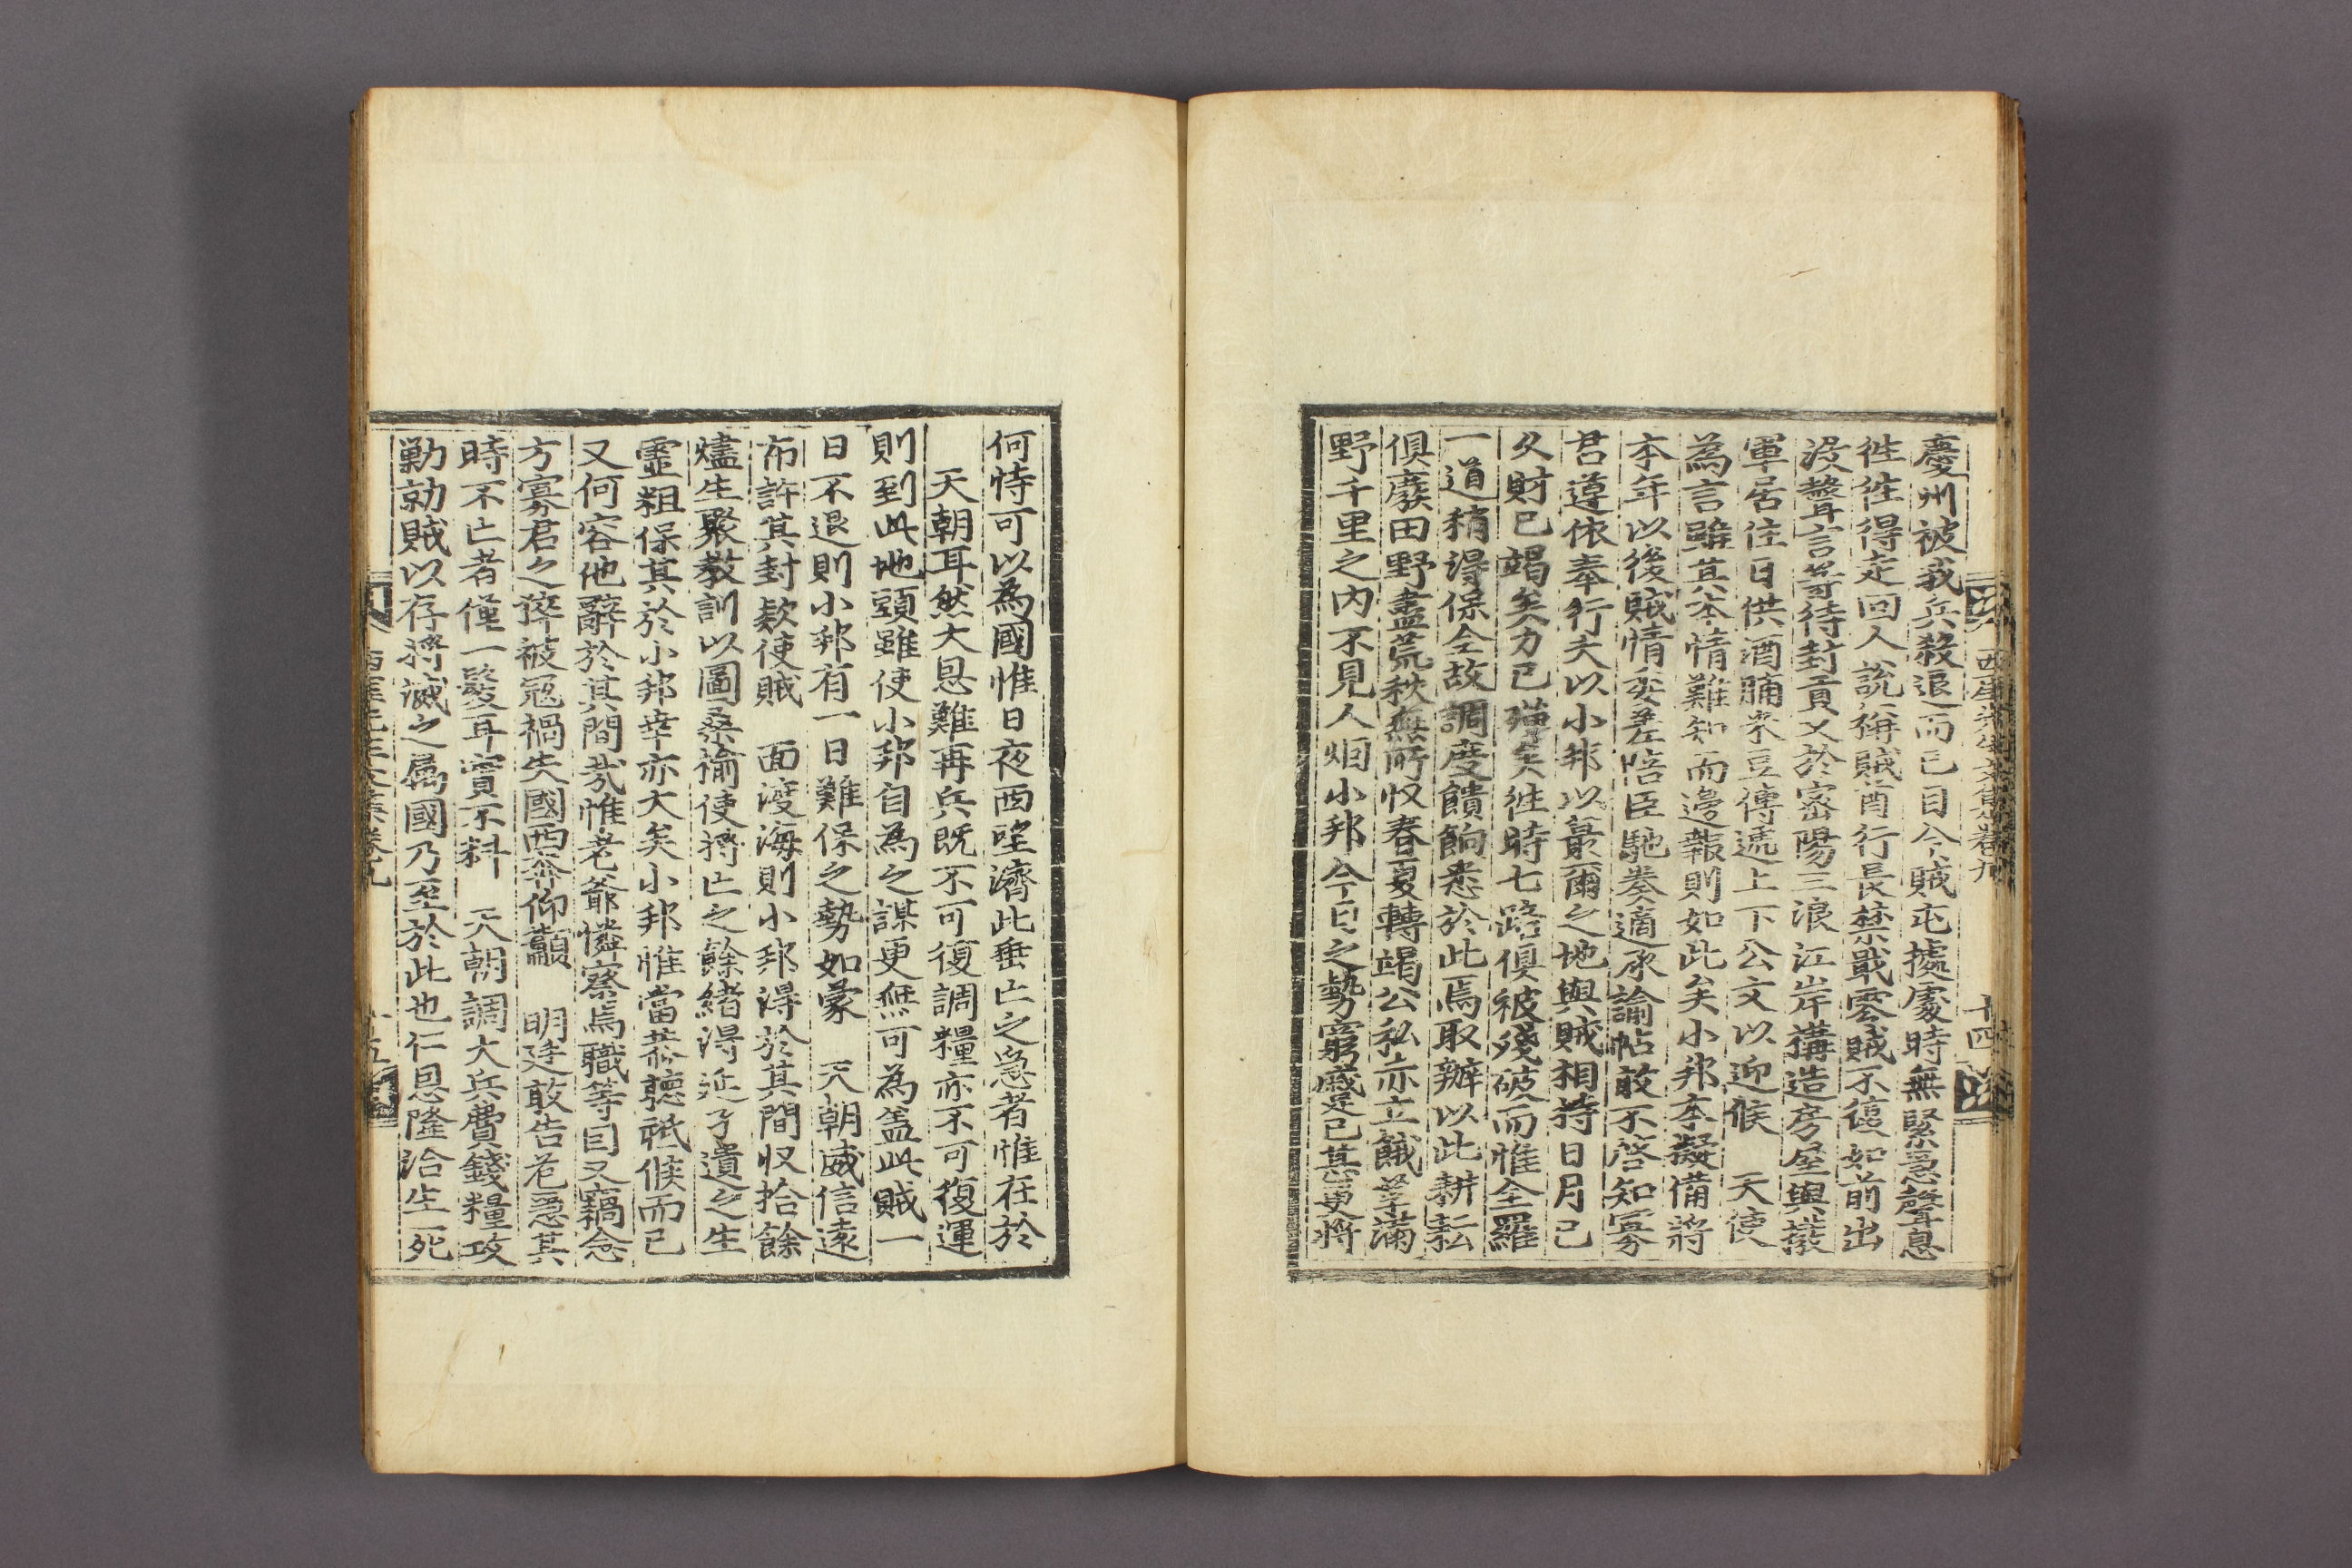 慶州被我兵殺退而已目今賊屯據處時無緊急聲息
徃徃得走回人說稱賊酋行長禁戢零賊不復如前出
沒聲言等待封貢又於密陽三浪江岸搆造房屋與撥
軍居住日供酒脯米豆傳遞上下公文以迎候　天使
為言雖其本情難知而邊報則如此矣小邦本擬備將
本年以後賊情委差陪臣馳奏適承諭帖敢不啓知寡
君遵依奉行夫以小邦以蕞爾之地與賊相持日月已
久財已竭矣力已殫矣徃時七路復被殘破而惟全羅
一道稍得保全故調度饋餉悉於此焉取辦以此耕耘
俱廢田野盡荒秋無所收春夏轉竭公私赤立餓莩滿
野千里之內不見人烟小邦今日之勢窮蹙已甚更將
西厓先生文集卷九　十四
何恃可以為國惟日夜西望濟此垂亡之急者惟在於
天朝耳然大恩難再兵既不可復調糧亦不可復運
則到此地頭雖使小邦自為之謀更無可為盖此賊一
日不退則小邦有一日難保之勢如蒙　天朝威信遠
布許其封欵使賊　面渡海則小邦得於其間收拾餘
燼生聚敎訓以圖桑楡使將亡之餘緖得延孑遺之生
靈粗保其於小邦幸亦大矣小邦惟當恭聽祗候而已
又何容他辭於其間哉惟老爺憐察焉職等目又竊念
方寡君之猝被冦禍失國西奔仰籲　明廷敢告危急其
時不亡者僅一髮耳實不料　天朝調大兵費錢糧攻
勦勍賊以存將滅之屬國乃至於此也仁恩隆洽生死
西厓先生文集卷九　十五